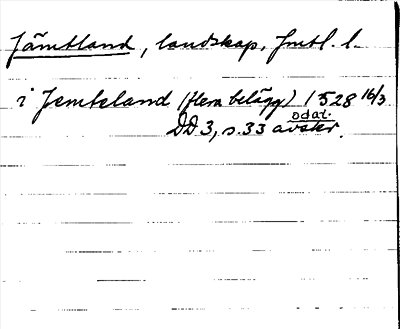 Jämtland, landskap, Jmtl. l.
i Jemteland (flera belägg) 1528 16/3
odat.
DD 3, s. 33 avskr.